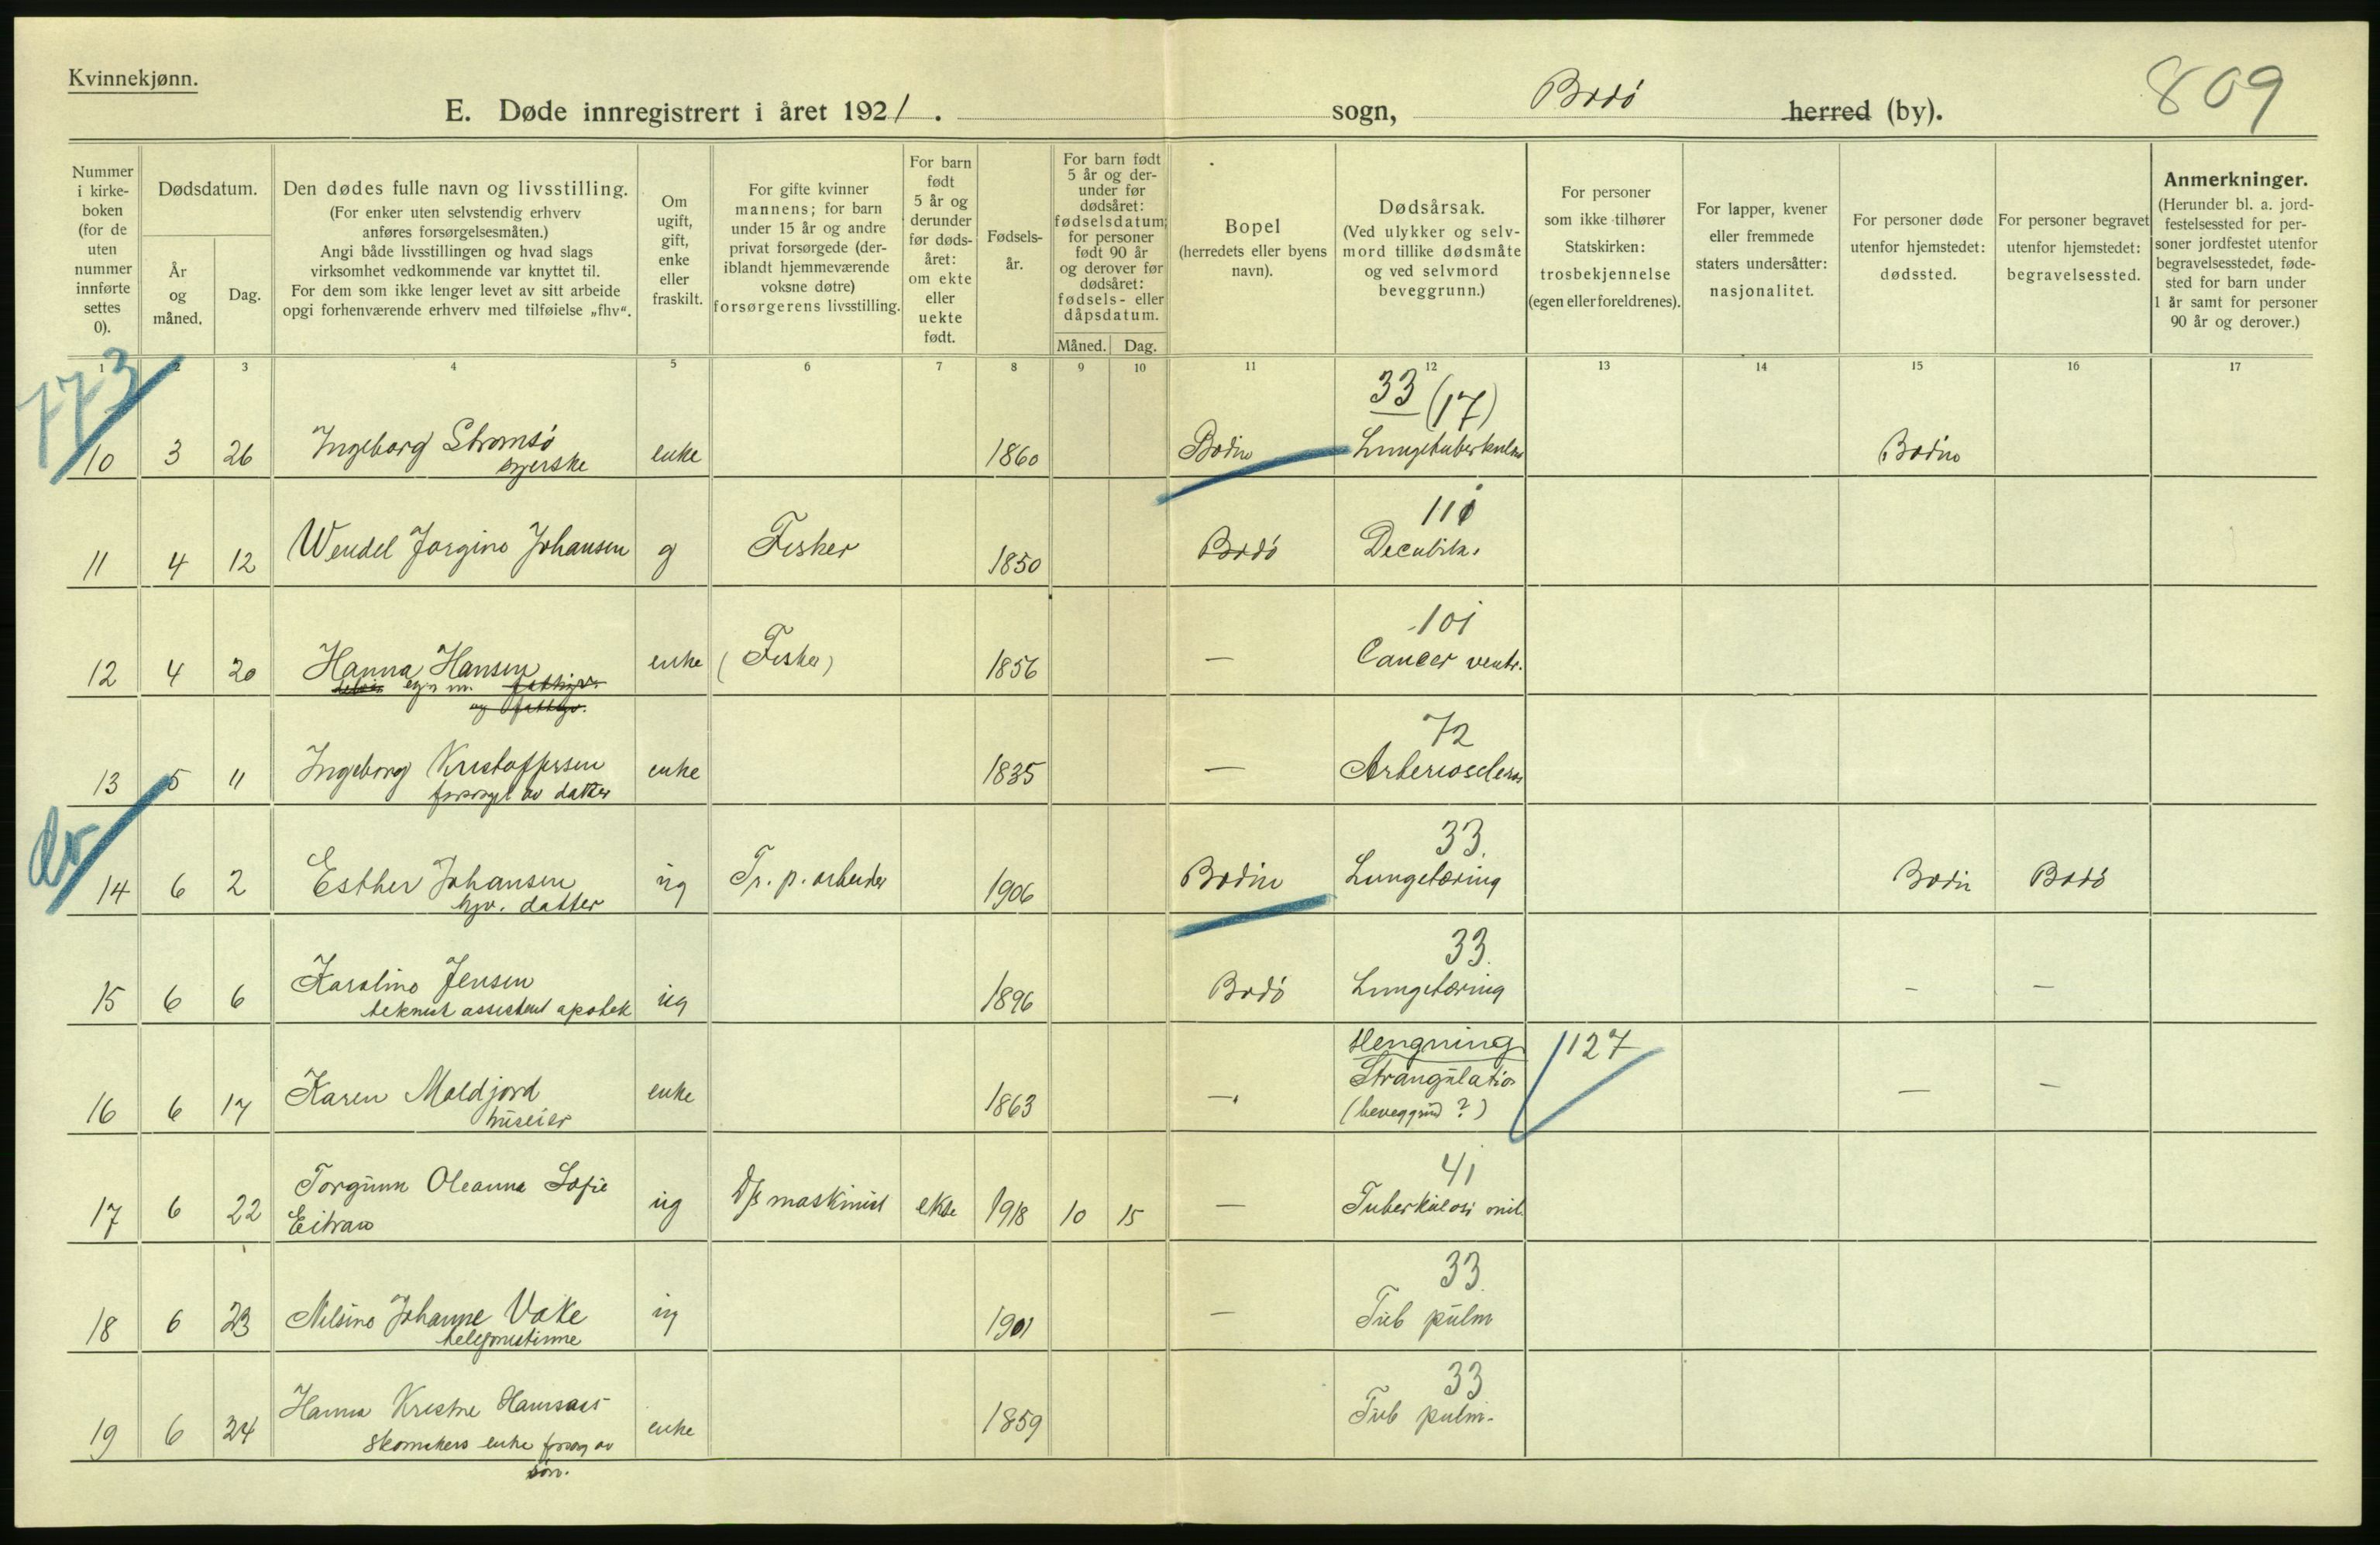 Kvinnekjønn.
E. Døde innregistrert i året 1921.
sogn, Bodø herred (by).
809
Nummer i kirkeboken (for de uten nummer innførte settes 0).
Dødsdatum.
År og måned.
Dag.
Den dødes fulle navn og livsstilling.
(For enker uten selvstendig erhverv anføres forsørgelsesmåten.)
Angi både livsstillingen og hvad slags virksomhet vedkommende var knyttet til.
For dem som ikke lenger levet av sitt arbeide opgi forhenværende erhverv med tilføielse „fhv“.
Om ugift, gift, enke eller fraskilt.
For gifte kvinner mannens; for barn under 15 år og andre privat forsørgede (deriblandt hjemmeværende voksne døtre) forsørgerens livsstilling.
For barn født 5 år og derunder før dødsåret: om ekte eller uekte født.
Fødselsår.
For barn født 5 år og derunder før dødsåret: fødselsdatum; for personer født 90 år og derover før dødsåret: fødsels- eller dåpsdatum.
Måned.
Dag.
Bopel (herredets eller byens navn).
Dødsårsak.
(Ved ulykker og selvmord tillike dødsmåte og ved selvmord beveggrunn.)
For personer som ikke tilhører Statskirken: trosbekjennelse (egen eller foreldrenes).
For lapper, kvener eller fremmede staters undersåtter: nasjonalitet.
For personer døde utenfor hjemstedet: dødssted.
For personer begravet utenfor hjemstedet: begravelsessted.
Anmerkninger.
(Herunder bl. a. jordfestelsessted for personer jordfestet utenfor begravelsesstedet, fødested for barn under 1 år samt for personer 90 år og derover.)
1 2 3 4 5 6 7 8 9 10 11 12 13 14 15 16 17
773
33 (17)
10 3 26 Ingeborg Strømsø enke 1860 Bodin Lungetuberkulose Bodin
syerske
111
11 4 12 Wendel Jørgine Johansen g Fisker 1850 Bodø Decubitus
101
12 4 20 Hanna Hansen enke (Fisker) 1856 — Cancer ventr.
72
13 5 11 Ingeborg Kristoffersen enke 1835 — Arteriosclerose
forsørget av datter
33.
14 6 2 Esther Johansen ug Tr. p. arbeider 1906 Bodin Lungetæring Bodin Bodø
hjv. datter
33.
15 6 6 Karoline Jensen ug 1896 Bodø Lungetæring — —
teknisk assistent apotek
Hengning 127
16 6 17 Karen Moldjord enke 1863 — Strangulatio — —
huseier (beveggrund ?)
41
17 6 22 Torgunn Oleanna Sofie ug D/s maskinist ekte 1918 10 15 — Tuberkulosis mil.
33.
18 6 23 Nilsine Johanne Vake ug 1901 — Tub pulm
telefonistinne
33
19 6 24 Hanna Kristine enke 1859 Tub pulm.
skomakers enke forsørg av
søn.